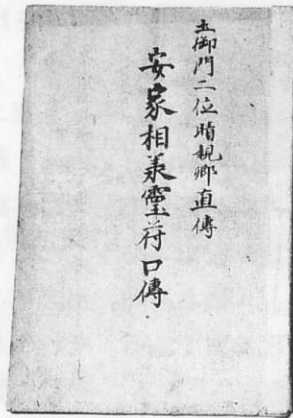 土御門二位晴親卿直傳
安家相承霊符口傳